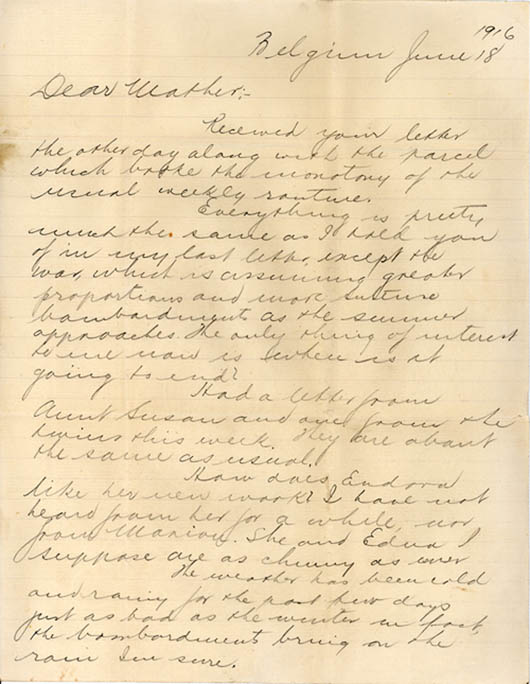 1916
Belgium June 18
Dear Mother;-
Received your letter
the other day along with the parcel
which broke the monotony of the
usual weekly routine.
Everything is pretty
much the same as I told you
of in my last letter, except the
war, which is assuming greater
proportions and more
bombardments as the summer
approaches. The only thing of interest
to me now is when is it
going to end?
Had a letter from
Aunt Susan and one from the
twins this week. They are about
the same as usual.
How does Endora
like her new work? I have not
heard from her for a while, nor
from Marion. She and Edna I
suppose are as chummy as ever
The weather has been cold
and rainy for the past few days
just as bad as the winter in fact,
the bombardments bring on the
rain I'm sure.